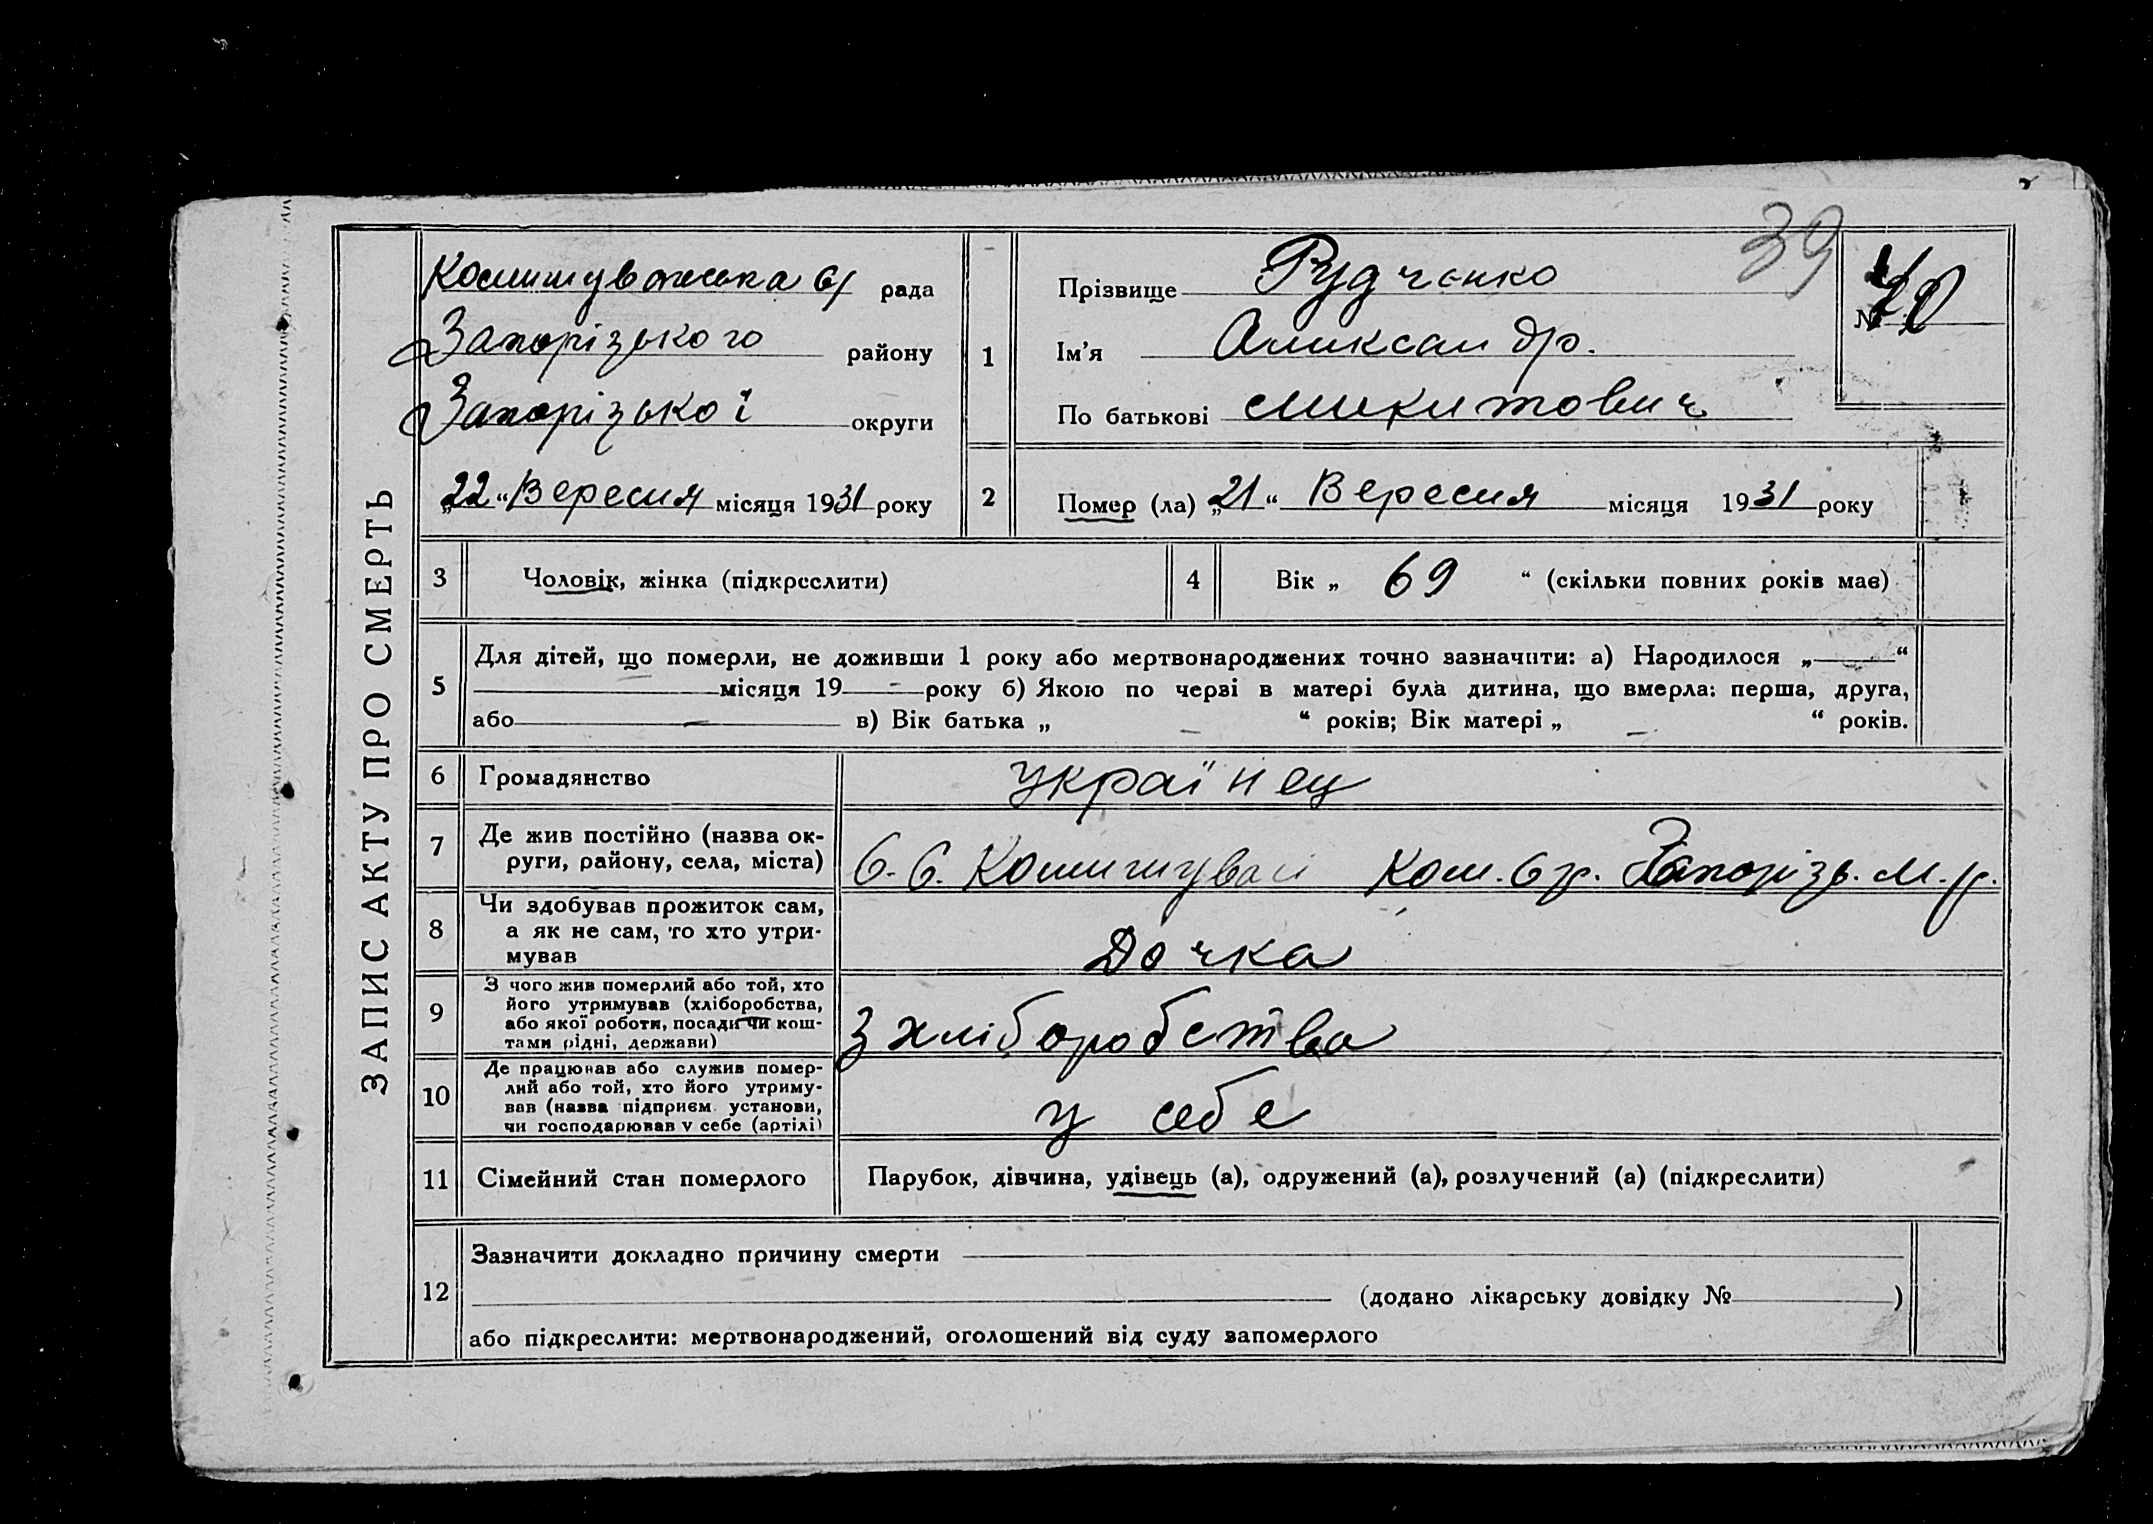 39
ЗАПИС АКТУ ПРО СМЕРТЬ
Комишуваська с/ рада
Запорізького району
Запорізької округи
„22“ Вересня місяця 1931 року
1
Прізвище Рудченко
Ім'я Аликсандр.
По батькові Микитович
№ 40
2 Помер (ла) „21“ Вересня місяця 1931 року
3 Чоловік, жінка (підкреслити)
4 Вік „ 69 “ (скільки повних років має)
5 Для дітей, що померли, не доживши 1 року або мертвонароджених точно зазначити: а) Народилося „ “
місяця 19 - року б) Якою по черзі в матері була дитина, що вмерла: перша, друга,
або — в) Вік батька „ – “ років; Вік матері „ – “ років.
6 Громадянство українец
7 Де жив постійно (назва ок-
руги, району, села, міста) с. с. Комишувас Ком. с р. Запорізь. м. р.
8 Чи здобував прожиток сам,
а як не сам, то хто утри-
мував Дочка
9 З чого жив померлий або той, хто
його утримував (хліборобства,
або якої роботи, посади чи кош-
тами рідні, держави) З хліборобства
10 Де працював або служив помер-
лий або той, хто його утриму-
вав (назва підприєм. установи,
чи господарював у себе (артілі) у себе
11 Сімейний стан померлого Парубок, дівчина, удівець (а), одружений (а), розлучений (а) (підкреслити)
12 Зазначити докладно причину смерти
(додано лікарську довідку № )
або підкреслити: мертвонароджений, оголошений від суду запомерлого